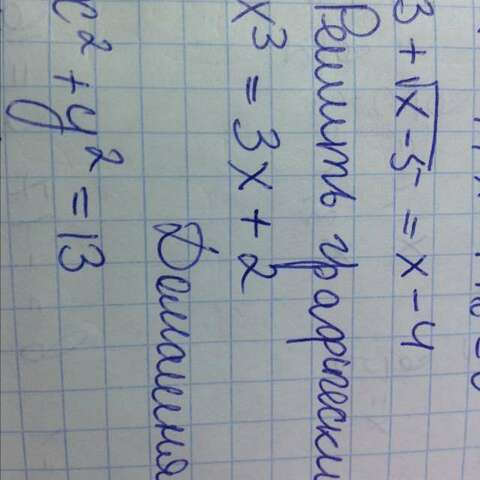 3 + √x-5 = x - 4
Решить графически
x³ = 3x + 2
Домашня
x² + y² = 13